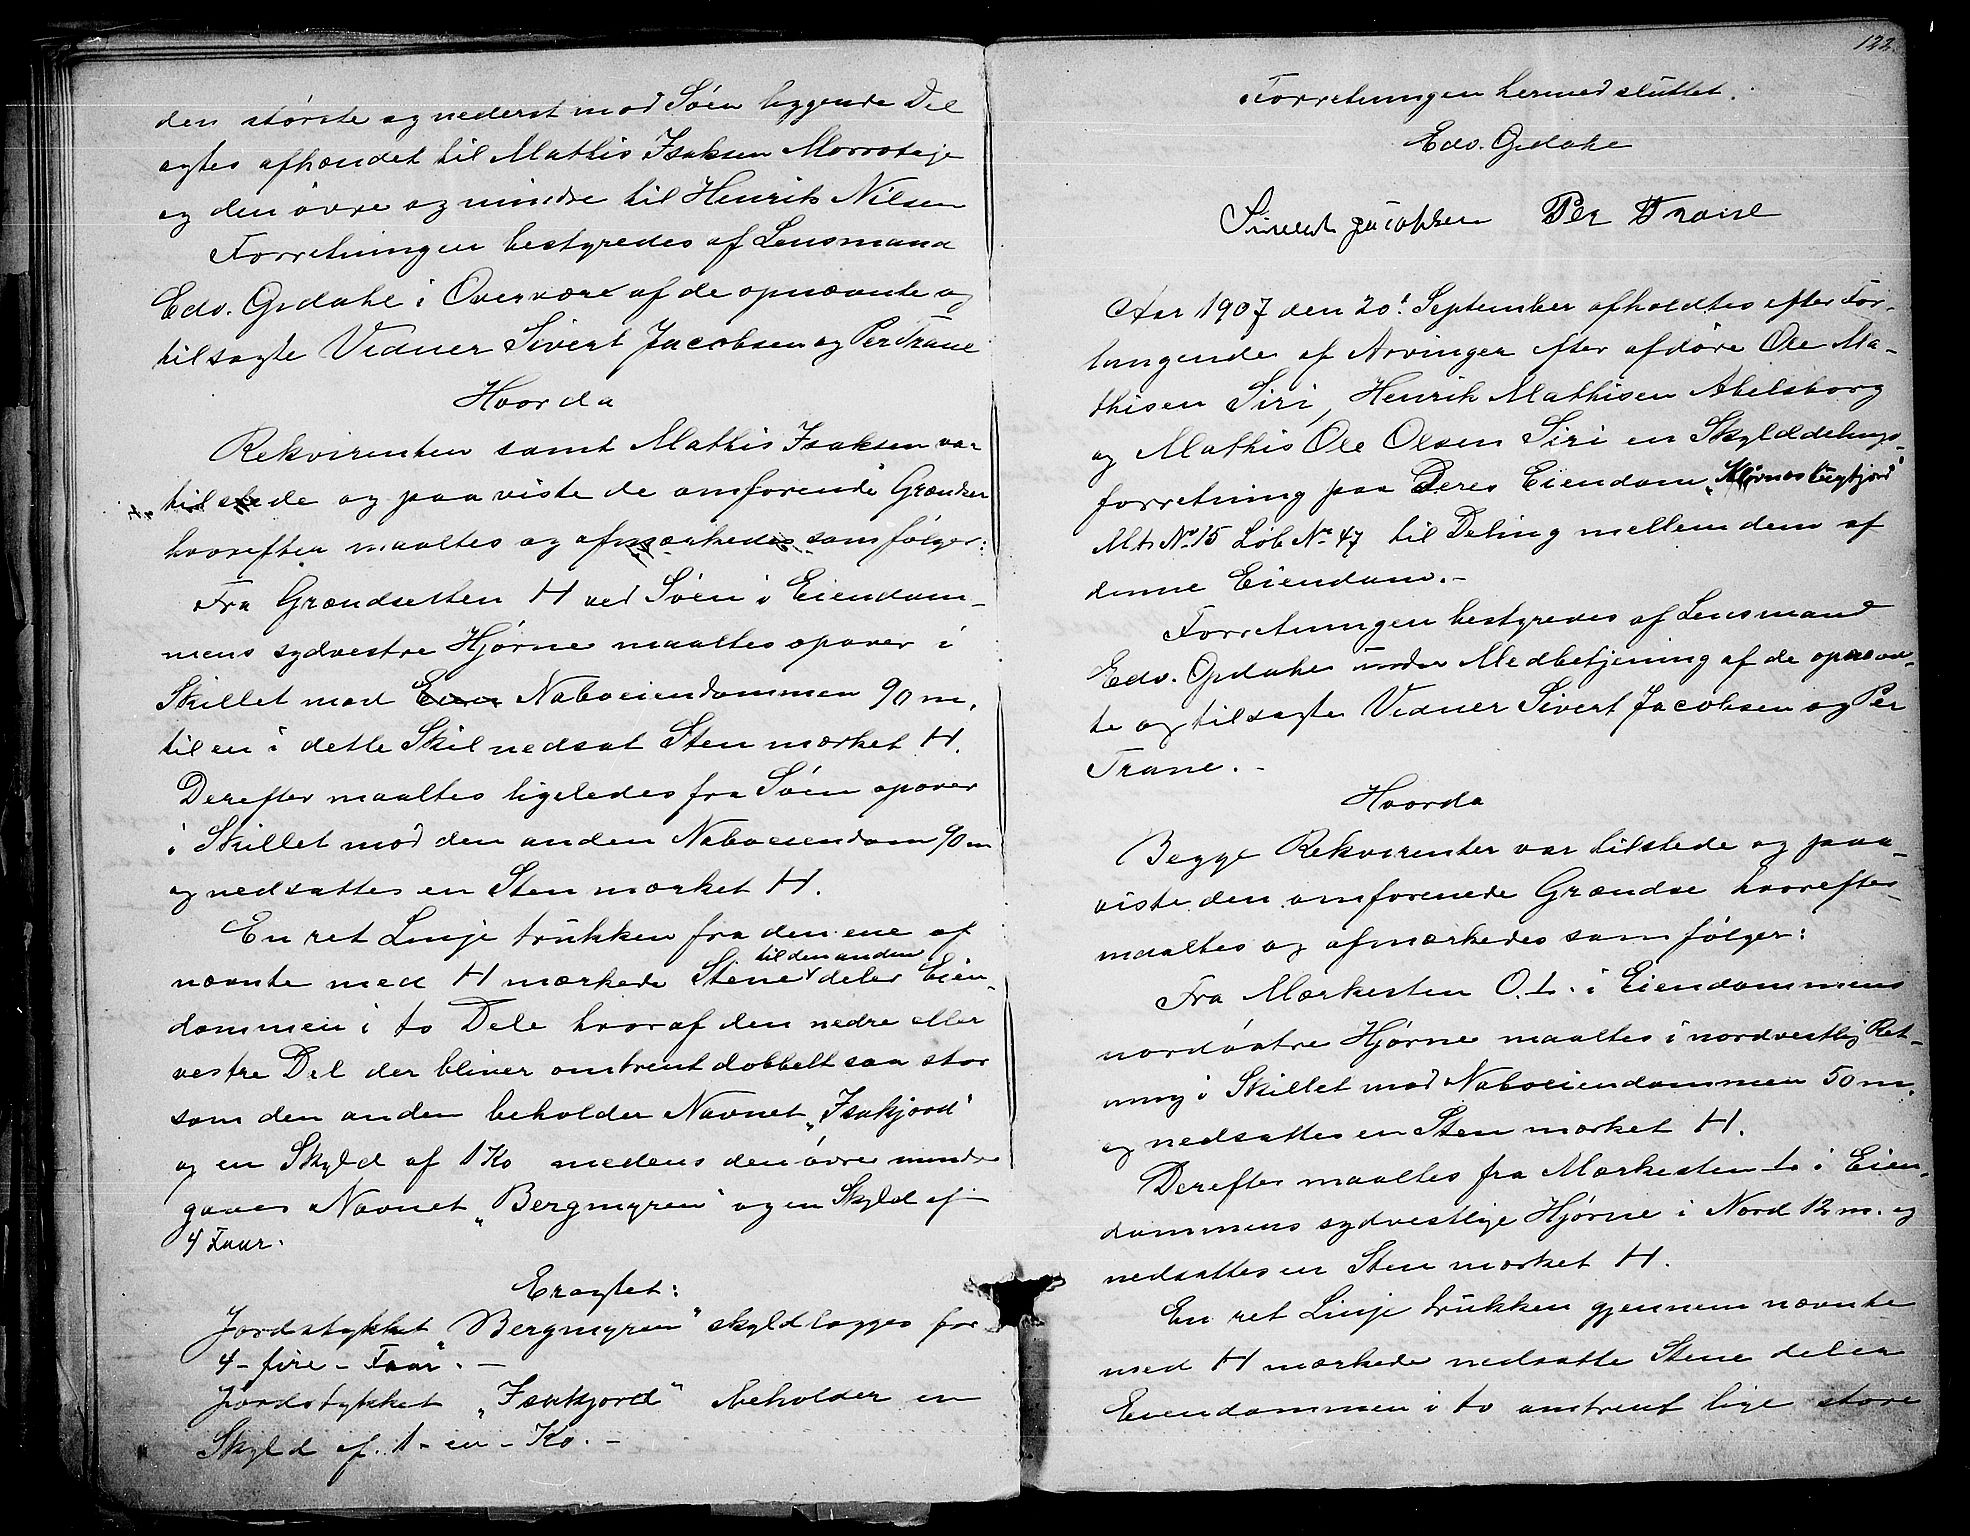 den største og nederst mod Søen liggende Del
agtes afhændet til Mathis Isaksen Morrotaje
og den øvre og mindre til Henrik Nilsen
Forretningen bestyredes af Lensmand
Edv. Opdahl i Overvære af de opnævnte og
tilsagte Vidner Sivert Jacobsen og Per Trane
Hvorda
Rekvirenten samt Mathis Isaksen var
tilstede og paaviste de omforende Grændser
hvorefter maaltes og afmærkedes som følger:
Fra Grændsesten H ved Søen i Eiendom-
mens sydvestre Hjørne maaltes opover i
Skillet mod Naboeiendommen 90 m.
til en i dette Skil nedsat Sten mærket H.
Derefter maaltes ligeledes fra Søen opover
i Skillet mod den anden Naboeiendom 90 m
og nedsattes en Sten mærket H.
En ret Linje trukken fra den ene af
nævnte med H mærkede Stene til den anden deler Eien-
dommen i to Dele hvoraf den nedre eller
vestre Del der bliver omtrent dobbelt saa stor
som den anden beholder Navnet „Isakjord"
og en Skyld af 1 Ko medens den øvre mindre
gives Navnet „Bergmyren" og en Skyld af
4 Faar.
Eragtet:
Jordstykket „Bergmyren" skyldlægges for
4 - fire - Faar. -
Jordstykket „Isakjord" beholder en
Skyld af 1 - en - Ko. -
122.
Forretningen hermed sluttet.
Edv. Opdahl
Sivert Jacobsen Per Trane
Aar 1907 den 20de September afholdtes efter For-
langende af Arvinger efter afdøde Ole Ma-
thisen Siri, Henrik Mathisen Abelsborg
og Mathis Ole Olsen Siri en Skylddelings-
forretning paa Deres Eiendom
Mt. No. 15 Løb No. 47 til Deling mellem dem af
denne Eiendom. -
Forretningen bestyredes af Lensmand
Edv. Opdahl under Medbetjening af de opnævn-
te og tilsagte Vidner Sivert Jacobsen og Per
Trane. -
Hvorda
Begge Rekvirenter var tilstede og paa-
viste den omforenede Grændse hvorefter
maaltes og afmærkedes som følger:
Fra Mærkesten O. L. i Eiendommens
nordøstre Hjørne maaltes i nordvestlig Ret-
ning i Skillet mod Naboeiendommen 50 m.
og nedsattes en Sten mærket H.
Derefter maaltes fra Mærkesten L. i Eien-
dommens sydvestlige Hjørne i Nord 12 m. og
nedsattes en Sten mærket H.
En ret Linje trukken gjennem nævnte
med H mærkede nedsatte Stene deler
Eiendommen i to omtrent lige store